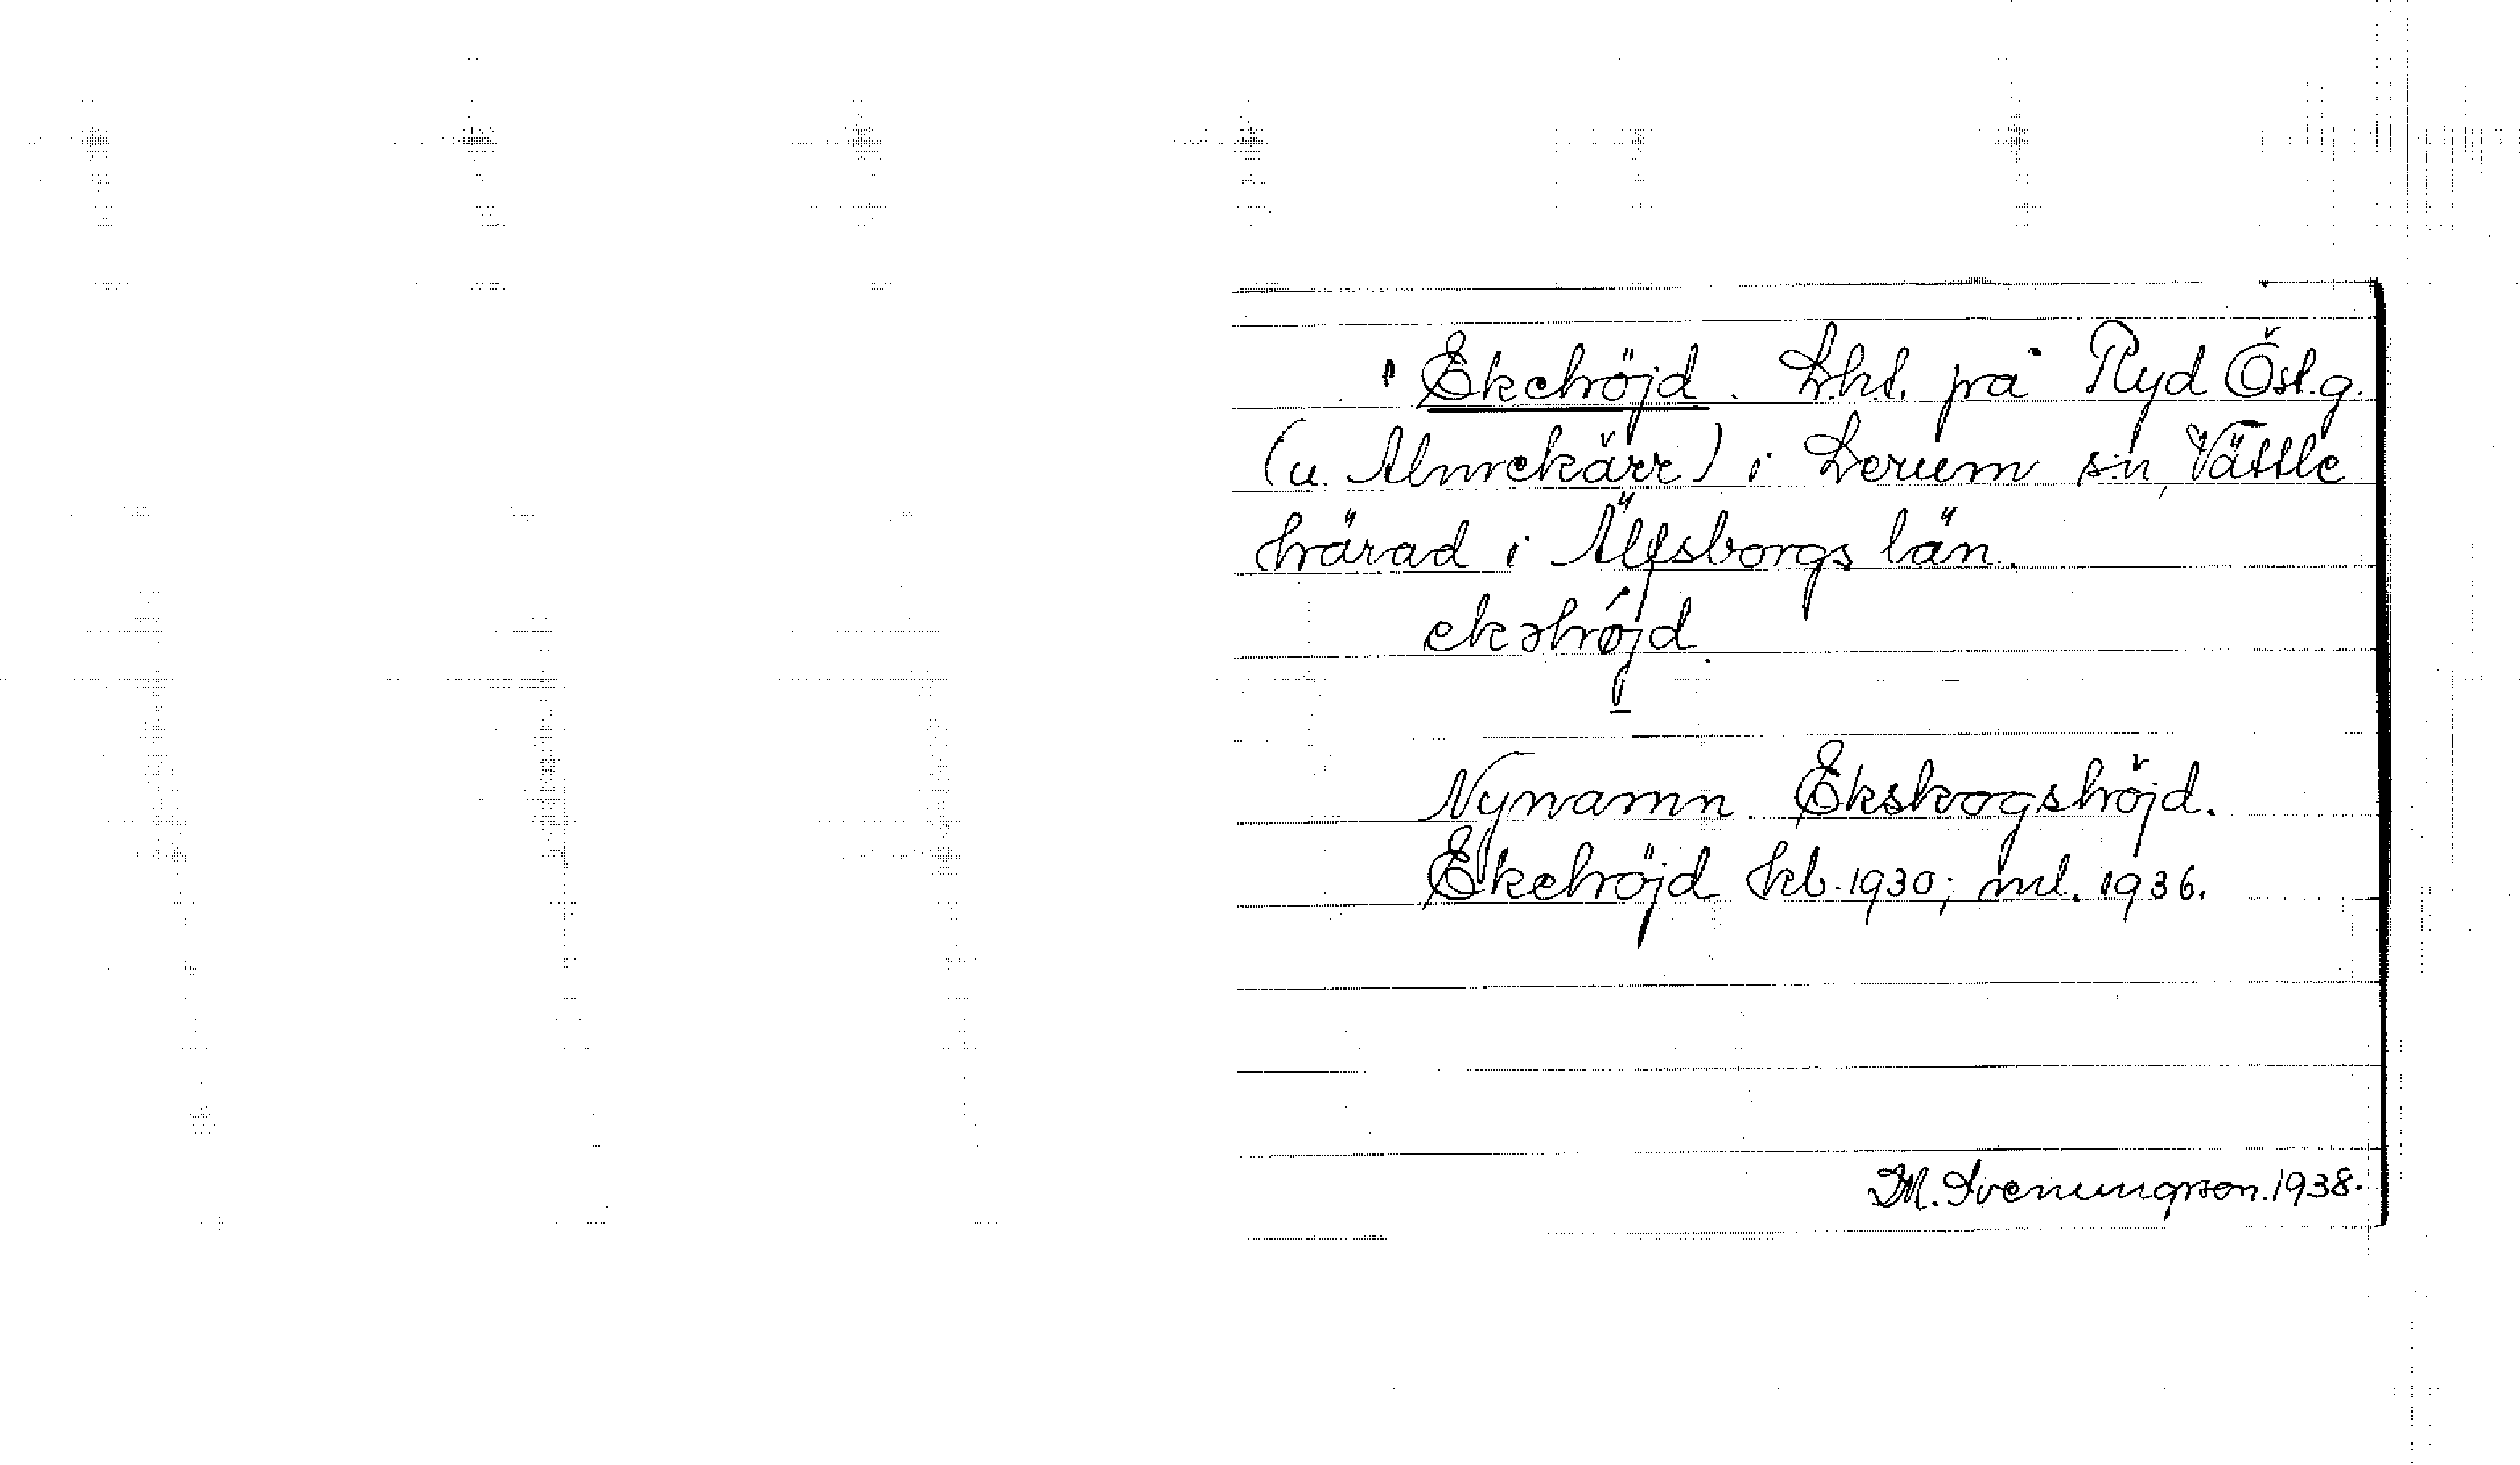 Ekehöjd. Lht. på Ryd Östg.
(u. Almekärr) i Lerum sn, Vättle
härad i Älfsborgs län.
ekəhöjd.
Nynamn Ekskogshöjd.
Ekehöjd hb. 1930; ml. 1936.
M. Sveningson. 1938.